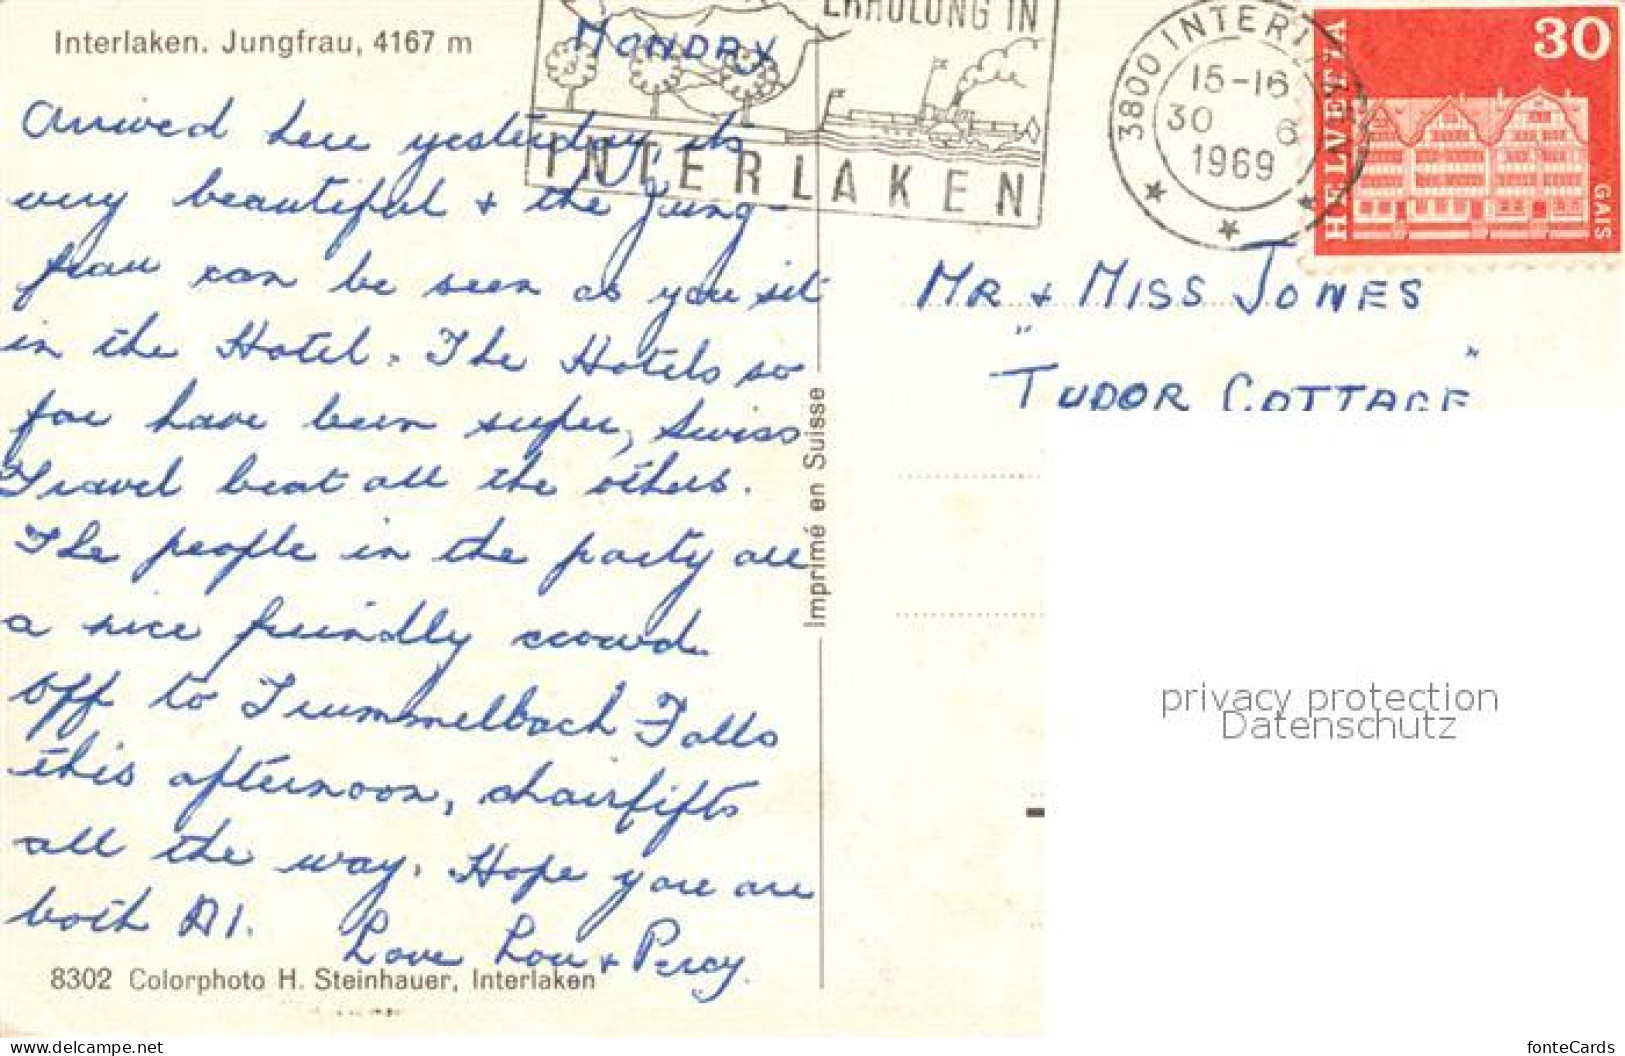 Interlaken. Jungfrau, 4167 m
MONDAY
ERHOLUNG IN
INTERLAKEN
3800 INTERL
15-16
30 6
1969
HELVETIA
30
GAIS
Arrived here yesterday, its
very beautiful + the Jung-
frau can be seen as you sit
in the Hotel. The Hotels so
far have been super, Swiss
Travel beat all the others.
The people in the party are
a nice friendly crowd
off to Trummelbach Falls
this afternoon, chairlifts
all the way. Hope you are
both A1.
Love Lou + Percy.
8302 Colorphoto H. Steinhauer, Interlaken
Imprimé en Suisse
MR + MISS JONES
"TUDOR COTTAGE"
privacy protection
Datenschutz
www.delcampe.net
fonteCards